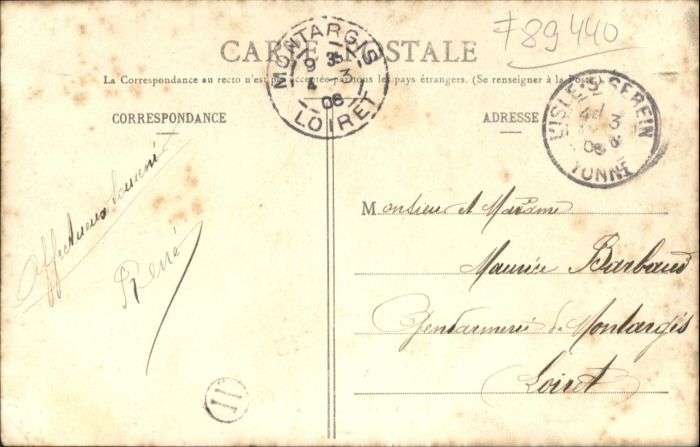 F89440
CARTE POSTALE
La Correspondance au recto n'est pas acceptée par tous les pays étrangers. (Se renseigner à la Poste)
MONTARGIS
9 35
4 3
08
LOIRET
L'ISLE-S-SEREIN
3
08
YONNE
CORRESPONDANCE
ADRESSE
Affectueux souvenir
René
Monsieur et Madame
Maurice Barbaud
Gendarmerie de Montargis
Loiret